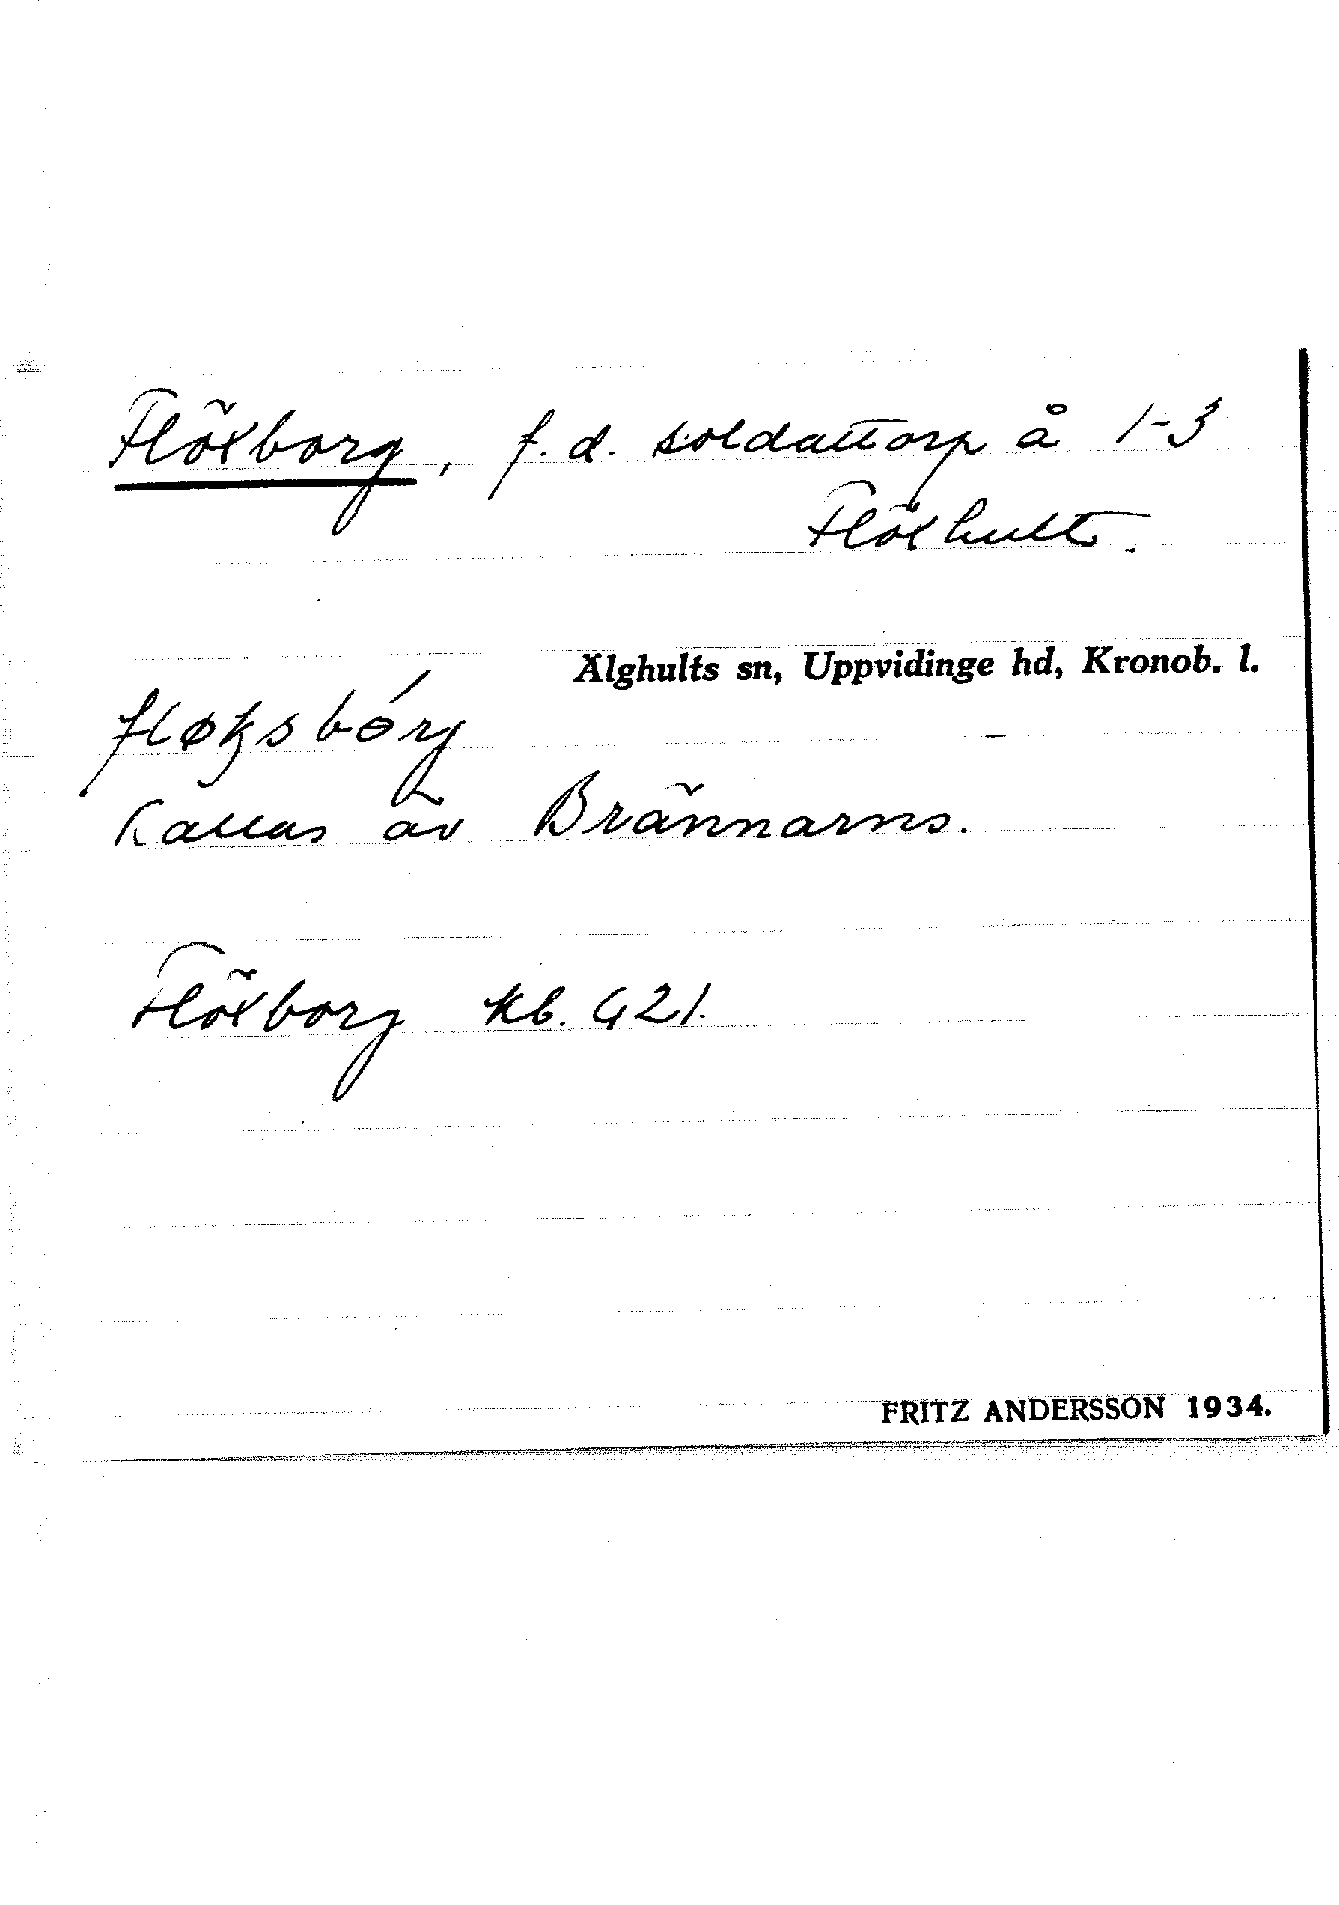 Flöxborg, f.d. soldattorp å 1-3
Flöxhult.
Älghults sn, Uppvidinge hd, Kronob. l.
fløksbórg
Kallas äv Brännarns.
Flöxborg kb. 421.
FRITZ ANDERSSON 1934.